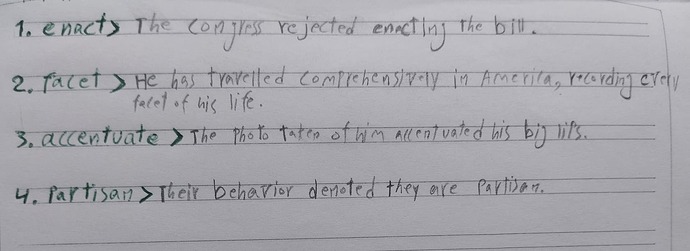 1. enact > The congress rejected enacting the bill.
2. facet > He has travelled comprehensively in America, recording every
facet of his life.
3. accentuate > The photo taken of him accentuated his big lips.
4. Partisan > Their behavior denoted they are Partisan.